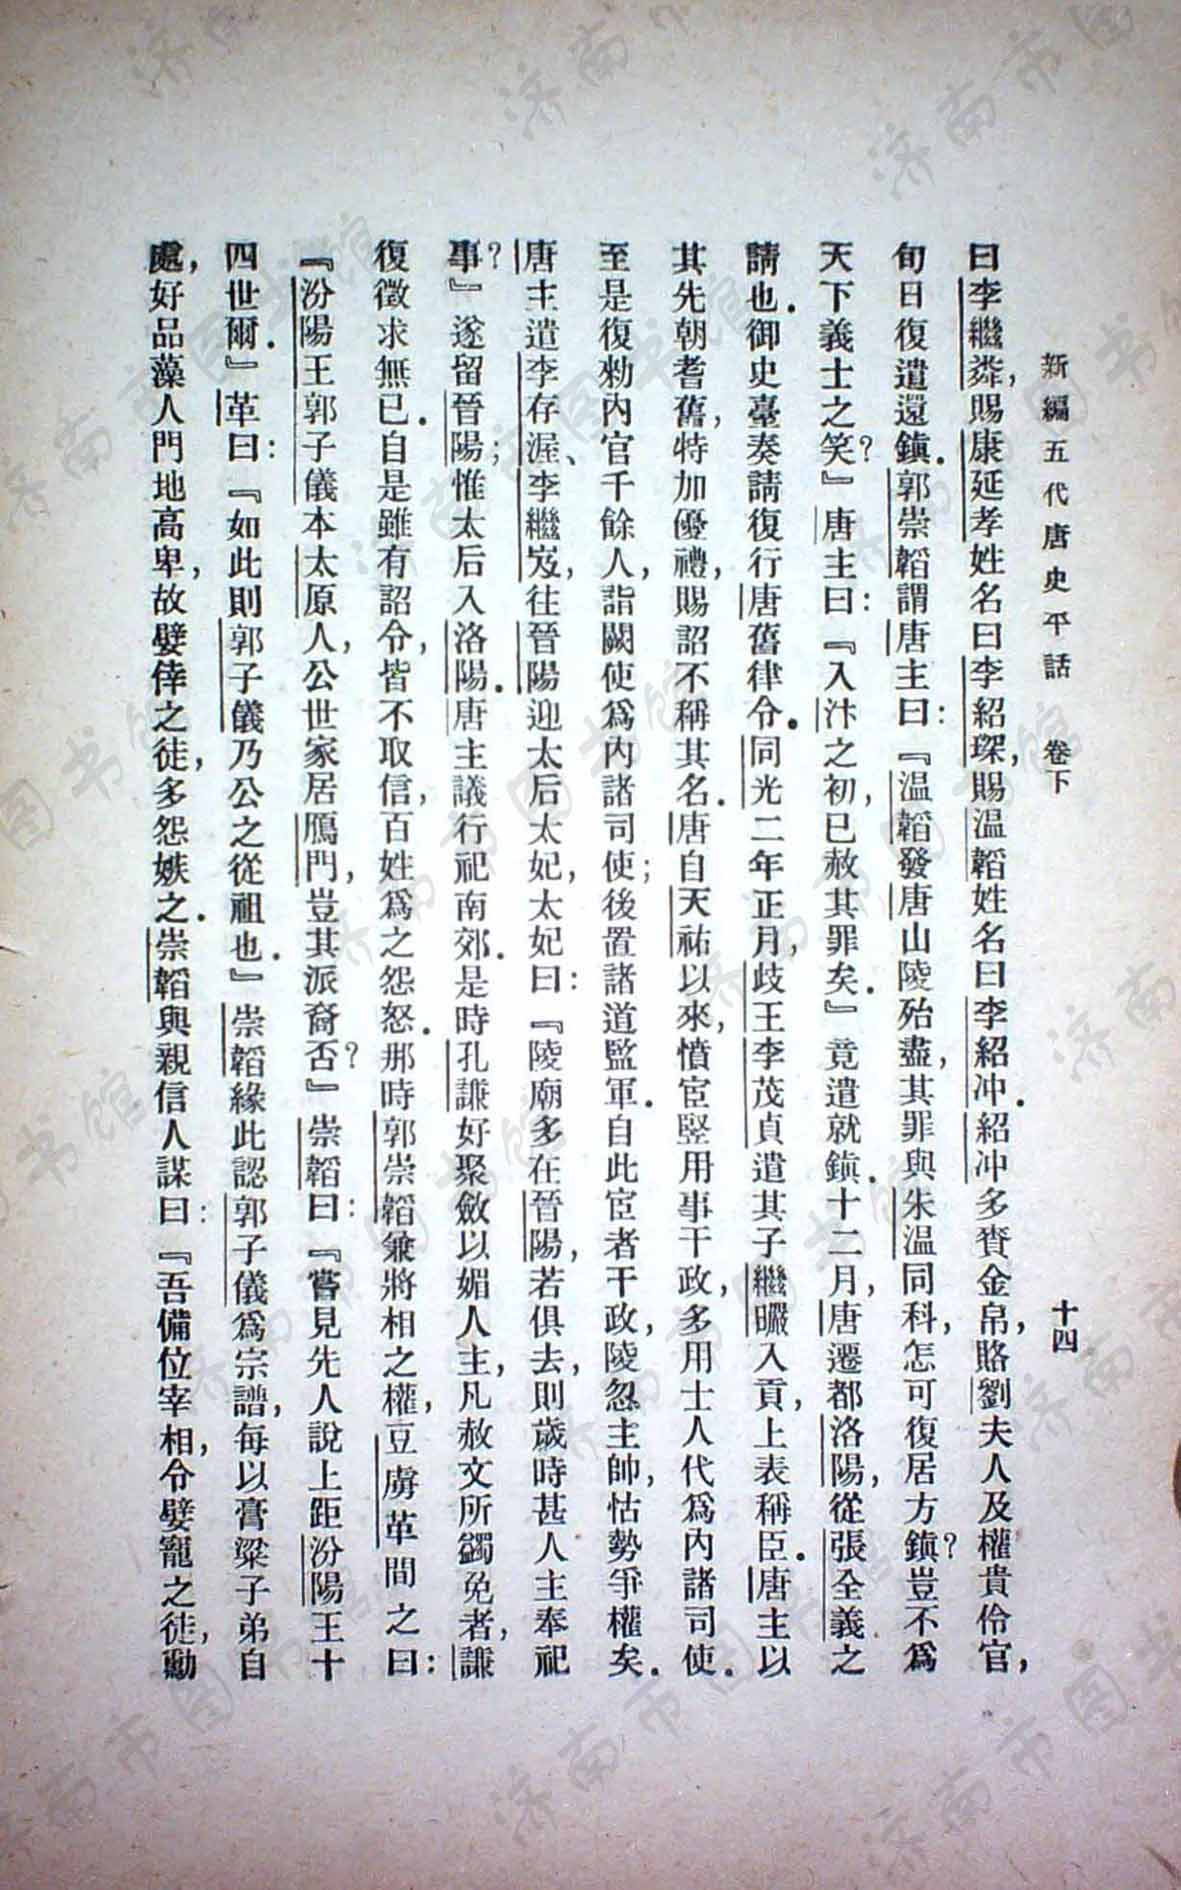 新編五代唐史平話　卷下　十四
曰李繼麟，賜康延孝姓名曰李紹琛，賜温韜姓名曰李紹冲．紹冲多賷金帛，賂劉夫人及權貴伶官，
旬日復遣還鎭．郭崇韜謂唐主曰：『温韜發唐山陵殆盡，其罪與朱温同科，怎可復居方鎭？豈不爲
天下義士之笑？』唐主曰：『入汴之初，已赦其罪矣．』竟遣就鎭．十二月，唐遷都洛陽，從張全義之
請也．御史臺奏請復行唐舊律令．同光二年正月，歧王李茂貞遣其子繼曮入貢，上表稱臣．唐主以
其先朝耆舊，特加優禮，賜詔不稱其名．唐自天祐以來，憤宦竪用事干政，多用士人代爲內諸司使．
至是復勑內官千餘人，詣闕使爲內諸司使；後置諸道監軍．自此宦者干政，陵忽主帥，怙勢爭權矣．
唐主遣李存渥、李繼岌，往晉陽迎太后太妃，太妃曰：『陵廟多在晉陽，若俱去，則歲時甚人主奉祀
事？』遂留晉陽；惟太后入洛陽．唐主議行祀南郊．是時孔謙好聚斂以媚人主，凡赦文所蠲免者，謙
復徵求無已．自是雖有詔令，皆不取信，百姓爲之怨怒．那時郭崇韜兼將相之權，豆虜革間之曰：
『汾陽王郭子儀本太原人，公世家居鴈門，豈其派裔否？』崇韜曰：『嘗見先人說上距汾陽王十
四世爾．』革曰：『如此則郭子儀乃公之從祖也．』崇韜緣此認郭子儀爲宗譜，每以膏粱子弟自
處，好品藻人門地高卑，故嬖倖之徒，多怨嫉之．崇韜與親信人謀曰：『吾備位宰相，令嬖寵之徒，勳
济南市图书馆